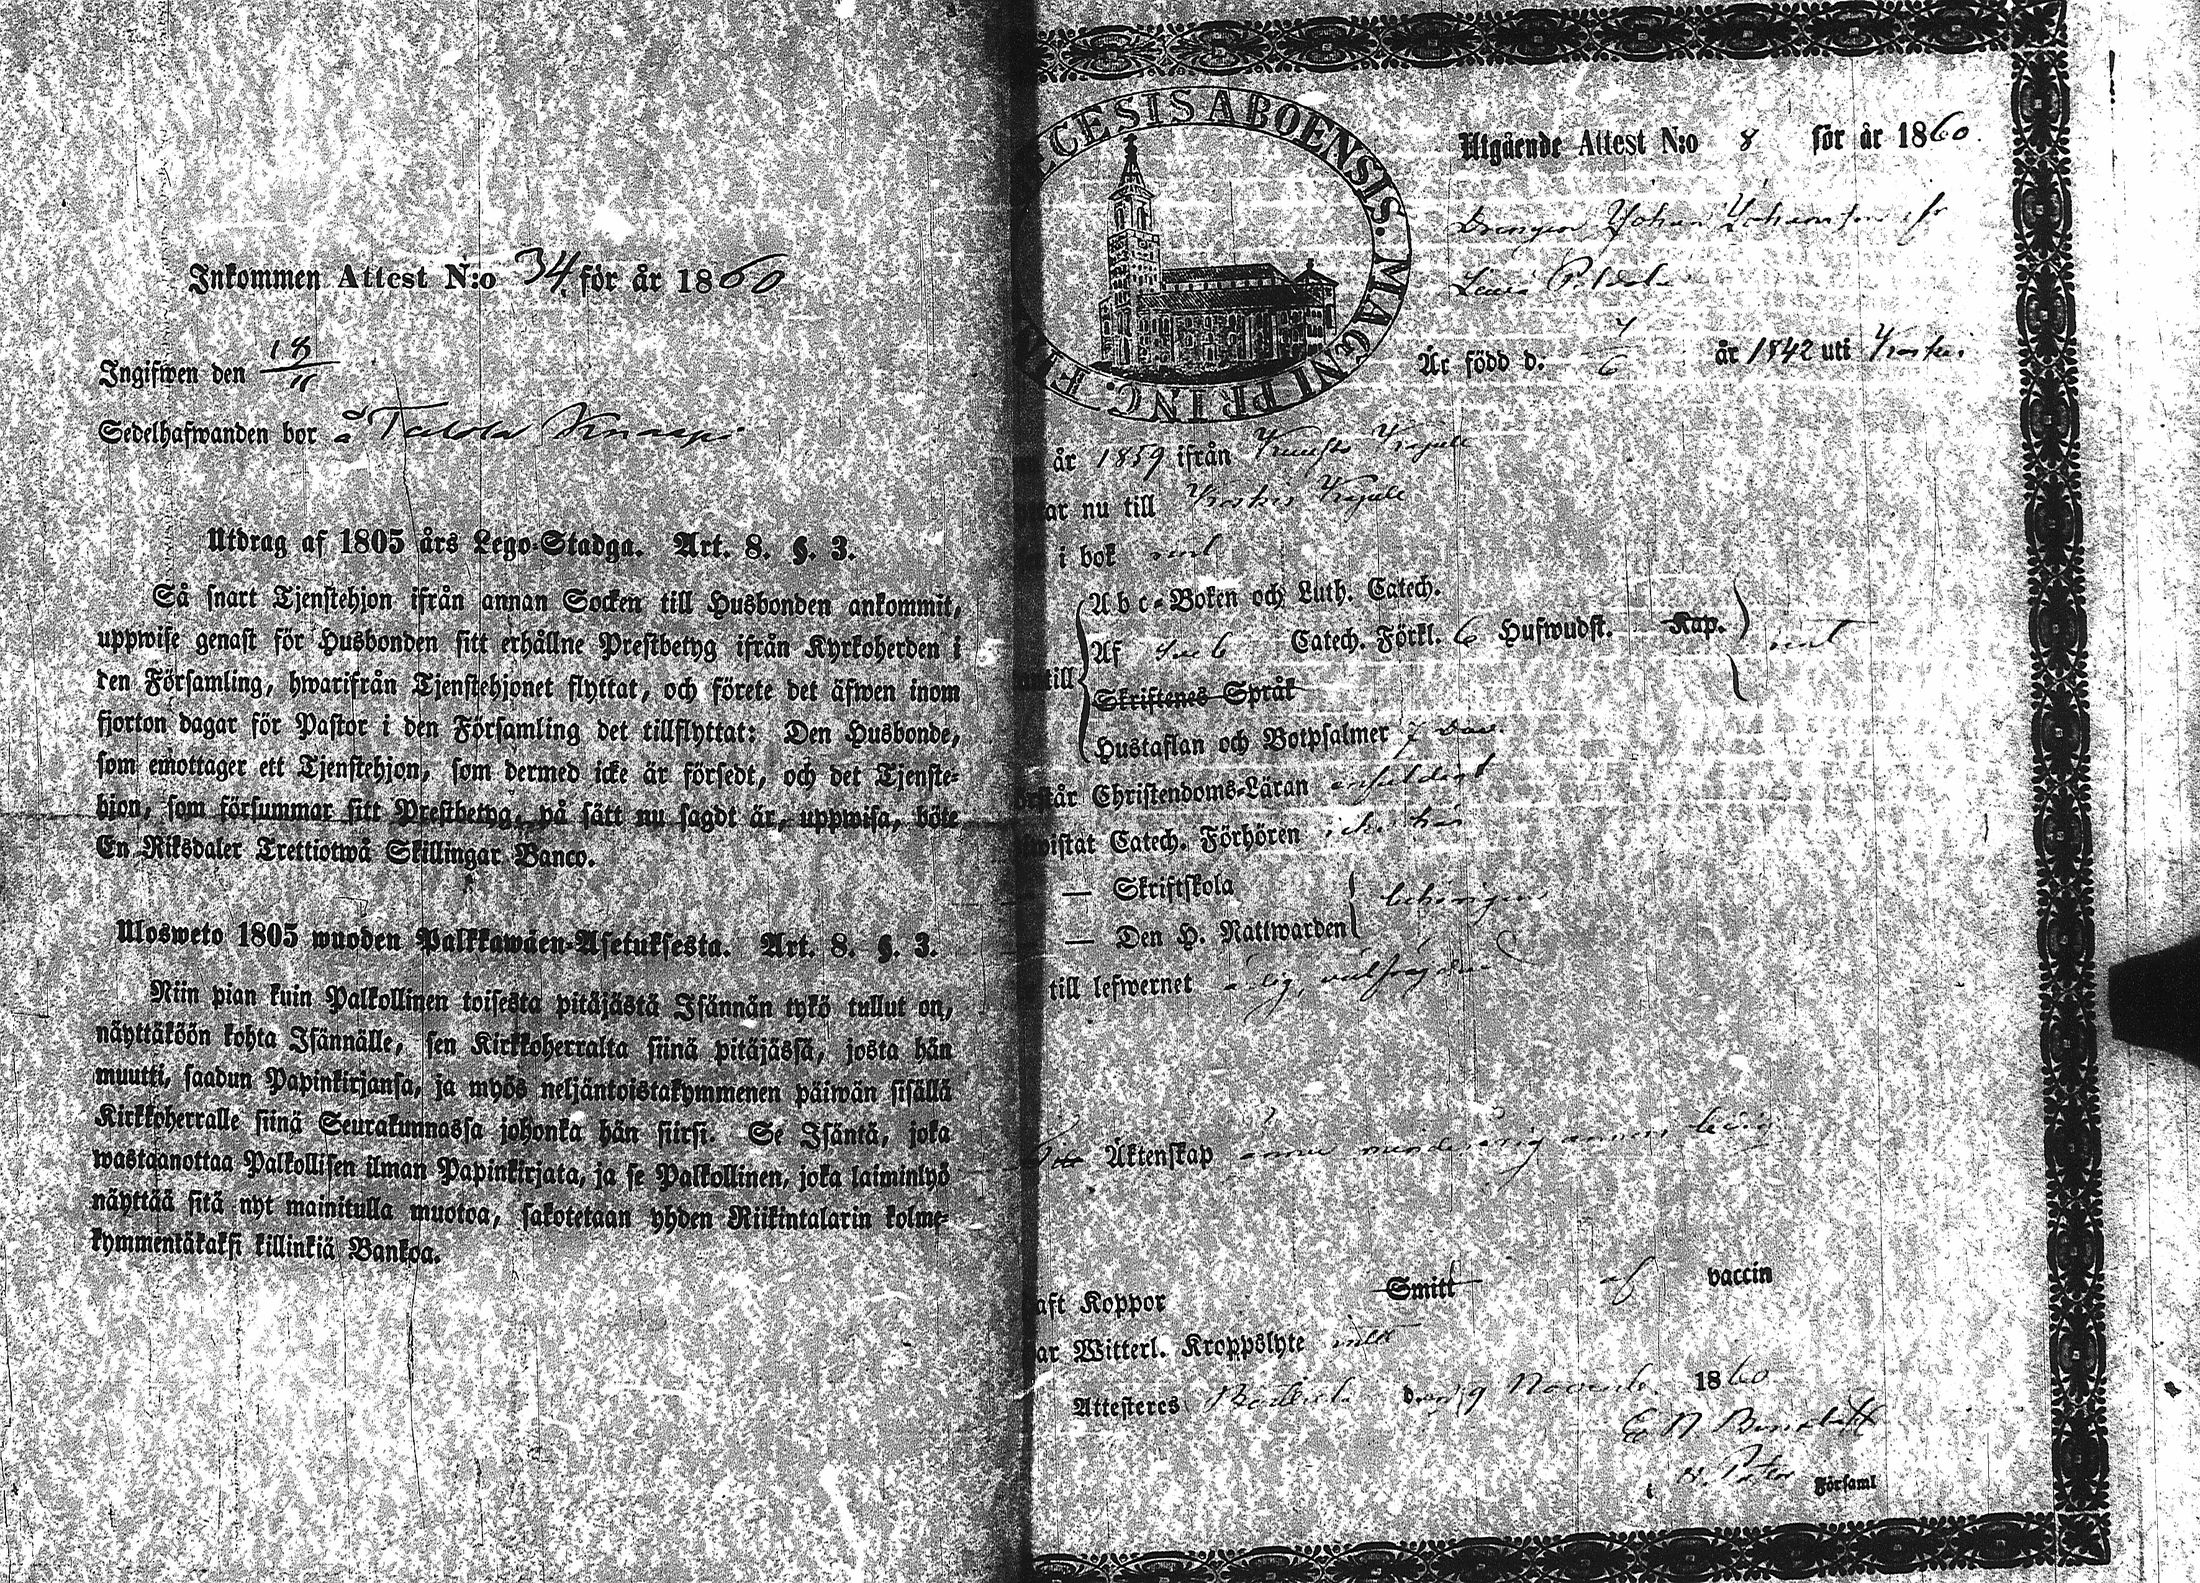 Inkommen Attest N:o 34 för år 1860
Ingifwen den 18/11
Sedelhafwanden bor å
Utdrag af 1805 års Lego-Stadga. Art. 8. §. 3.
Så snart Tjenstehjon ifrån annan Socken till Husbonden ankommit,
uppwise genast för Husbonden sitt erhållne Prestbetyg ifrån Kyrkoherden i
den Församling, hwarifrån Tjenstehjonet flyttat, och förete det äfwen inom
fjorton dagar för Pastor i den Församling det tillflyttat: Den Husbonde,
som emottager ett Tjenstehjon, som dermed icke är försedt, och det Tjenste=
hjon, som försummar sitt Prestbetyg, på sätt nu sagdt är, uppwisa, böte
En Riksdaler Trettiotwå Skillingar Banco.
Ulosweto 1805 wuoden Palkkawäen-Asetuksesta. Art. 8. §. 3.
Niin pian kuin Palkollinen toisesta pitäjästä Isännän tykö tullut on,
näyttäköön kohta Isännälle, sen Kirkkoherralta siinä pitäjässä, josta hän
muutti, saadun Papinkirjansa, ja myös neljäntoistakymmenen päiwän sisällä
Kirkkoherralle siinä Seurakunnassa johonka hän siirsi. Se Isäntä, joka
wastaanottaa Palkollisen ilman Papinkirjata, ja se Palkollinen, joka laiminlyö
näyttää sitä nyt mainitulla muotoa, sakotetaan yhden Riikintalarin kolme=
kymmentäkaksi killinkiä Bankoa.
ECESIS ABOENSIS. MAGNI PRINC. FI
Utgående Attest N:o 8 för år 1860.
Drengen Johan Johansson ifr
Är född d. 7/6 år 1842 uti Koskis
år 1859 ifrån
ar nu till Koskis
i bok
Abc-Boken och Luth. Catech.
Af Catech. Förkl. 6 Hufwudst. Kap.
till
Skriftenes Språk
Hustaflan och Botpsalmer 7 Dav.
står Christendoms-Läran enfaldigt
wistat Catech. Förhören
— Skriftskola
— Den H. Nattwarden behörigen
till lefwernet ärlig, välfrägdad
Äktenskap ännu minderårig annars ledig
aft Koppor Smitt af vaccin
ar Witterl. Kroppslyte intet
Attesteres den 9 November 1860
i Församl